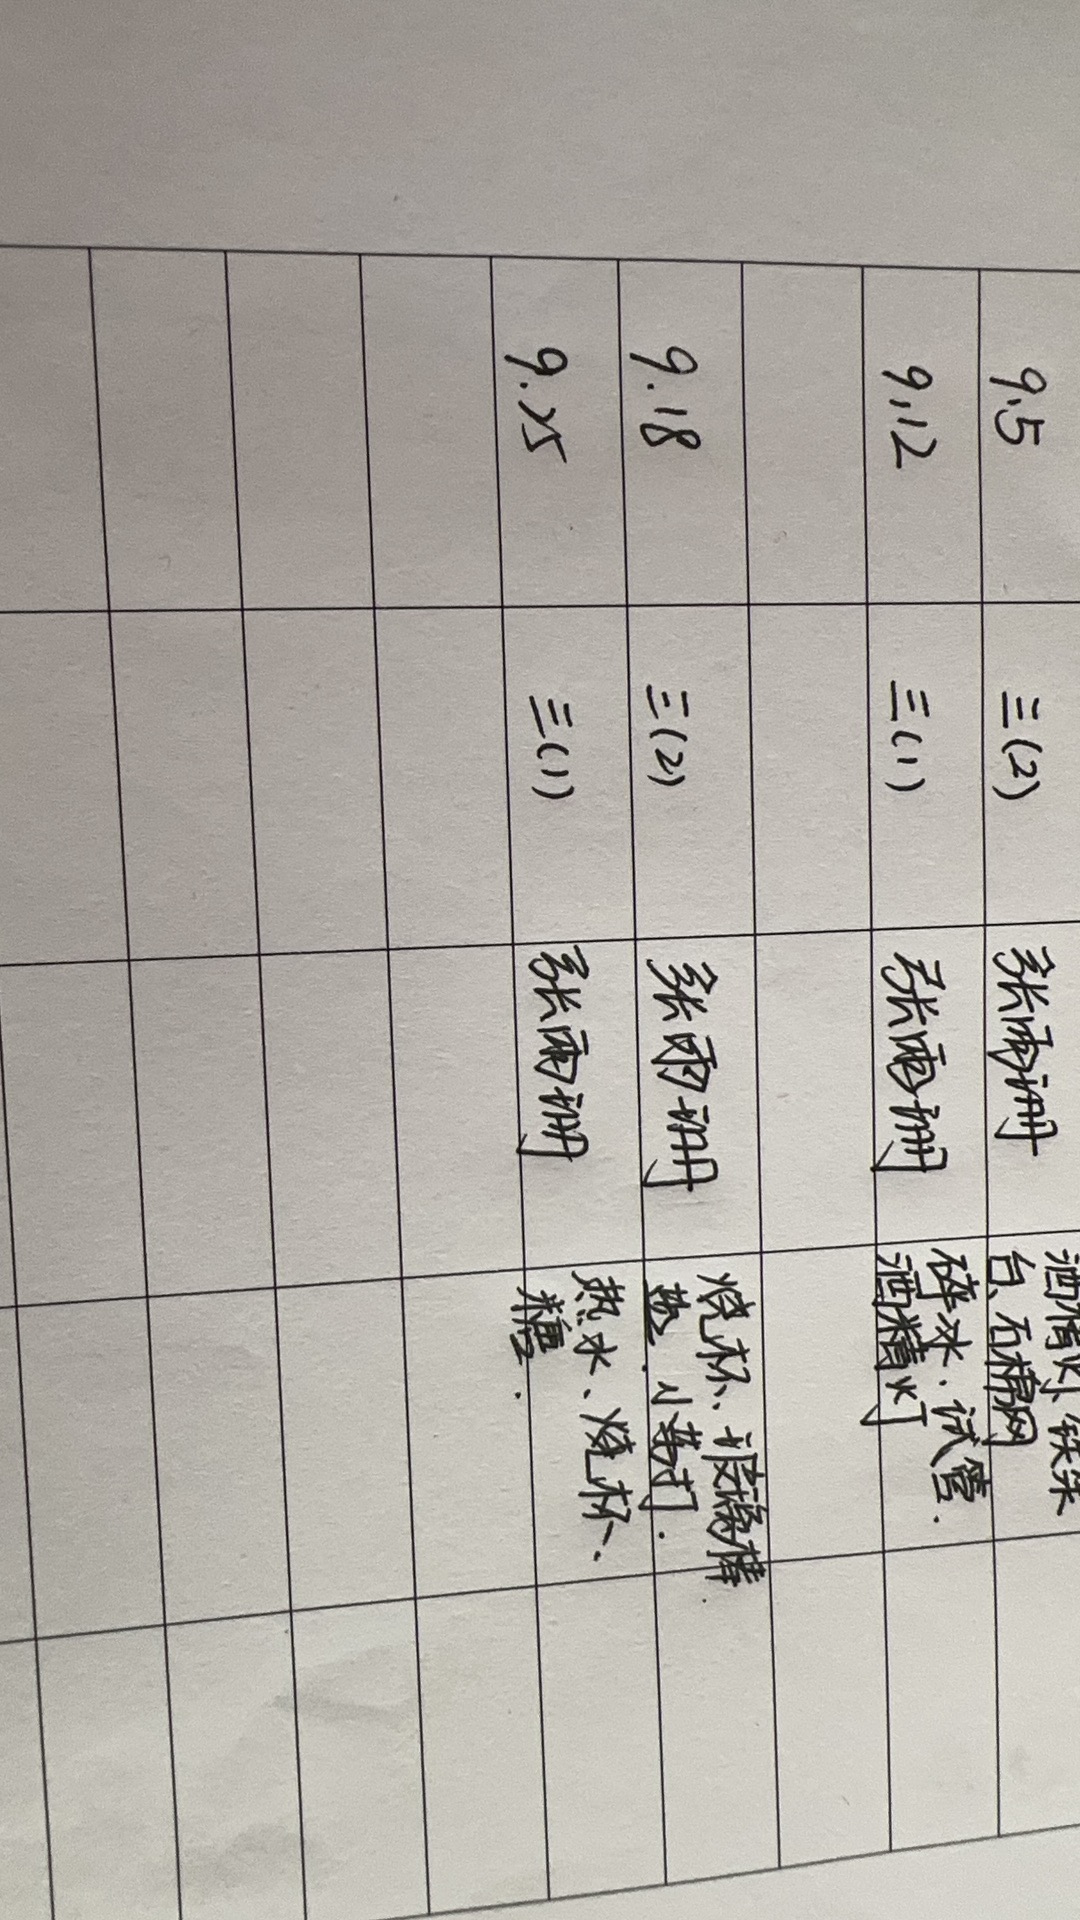 9.5 三(2) 张雨珊 酒精灯、铁架
台、石棉网
9.12 三(1) 张雨珊 碎冰、试管.
酒精灯
9.18 三(2) 张雨珊 烧杯、玻璃棒.
盐、小药勺.
9.25 三(1) 张雨珊 热水、烧杯、
糖.